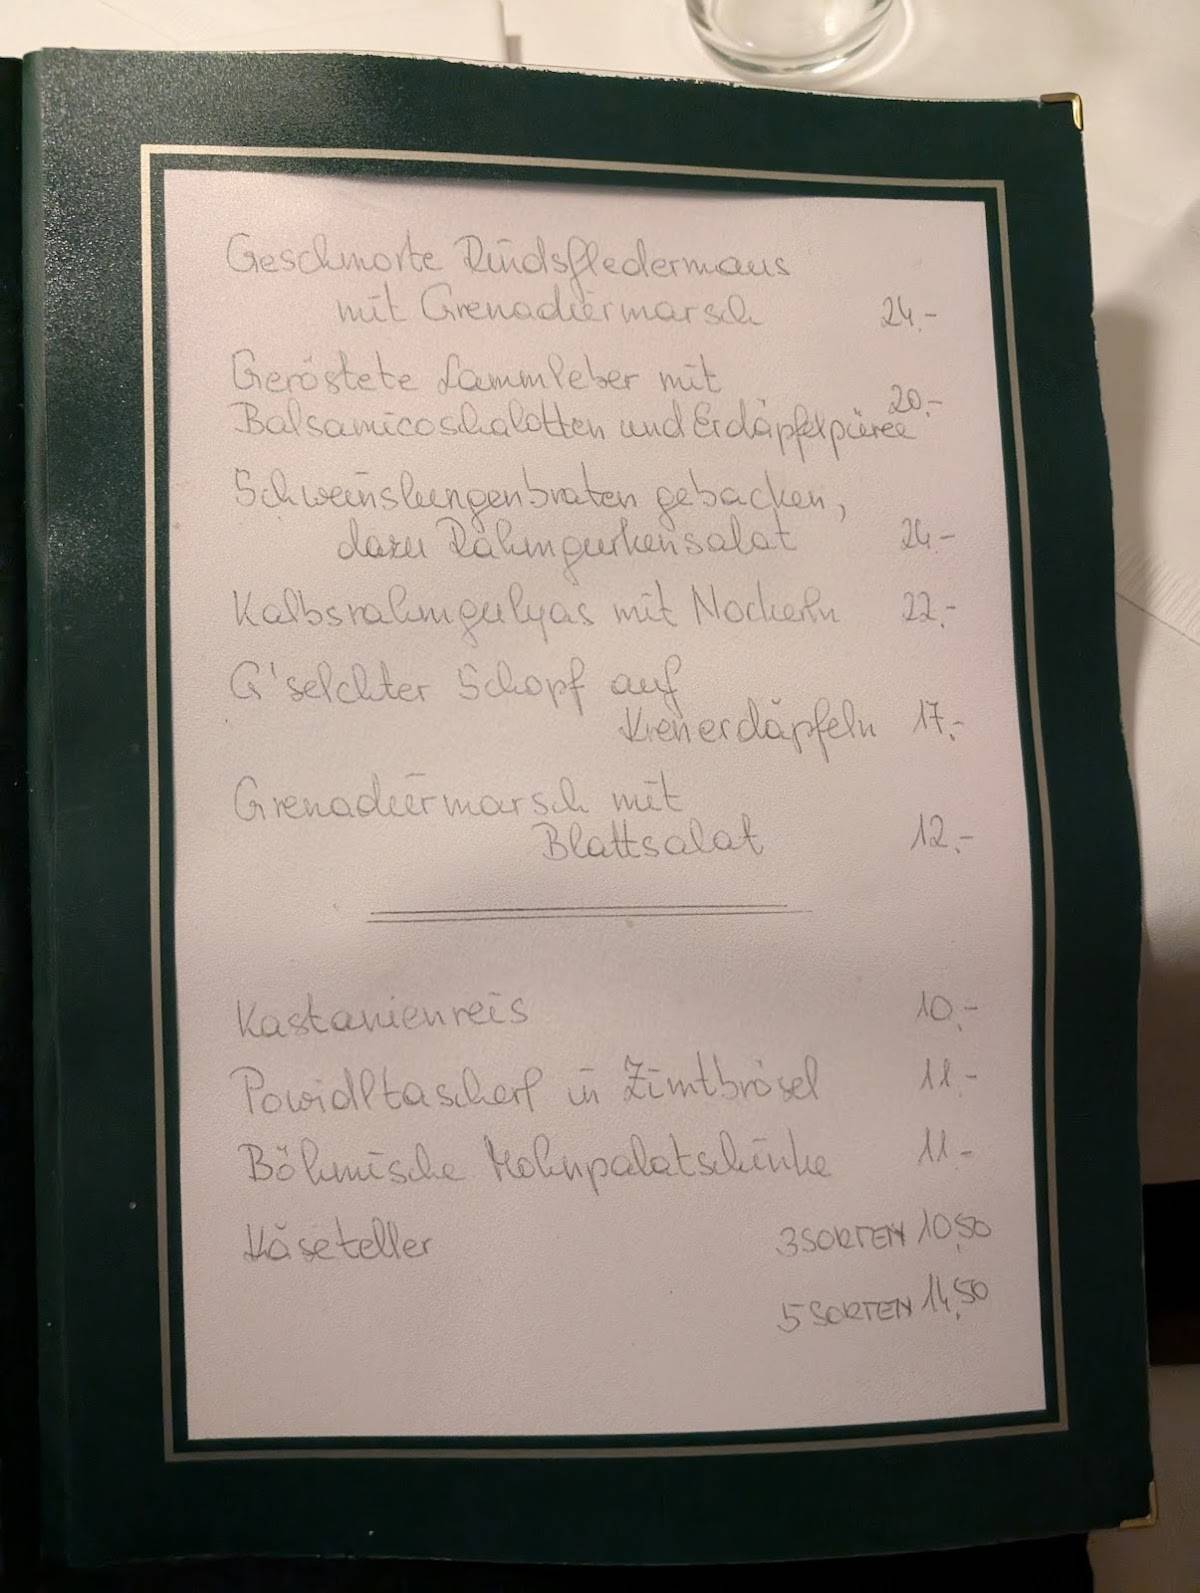 Geschmorte Rindsfledermaus
mit Grenadiermarsch 24.-
Geröstete Lammleber mit
Balsamicoschalotten und Erdäpfelpüree 20.-
Schweinslungenbraten gebacken,
dazu Rahmgurkensalat 24.-
Kalbsrahmgulyas mit Nockerln 22.-
G'selchter Schopf auf
Krenerdäpfeln 17.-
Grenadiermarsch mit
Blattsalat 12.-
Kastanienreis 10.-
Powidltascherl in Zimtbrösel 11.-
Böhmische Mohnpalatschinke 11.-
Käseteller 3 SORTEN 10,50
5 SORTEN 14,50